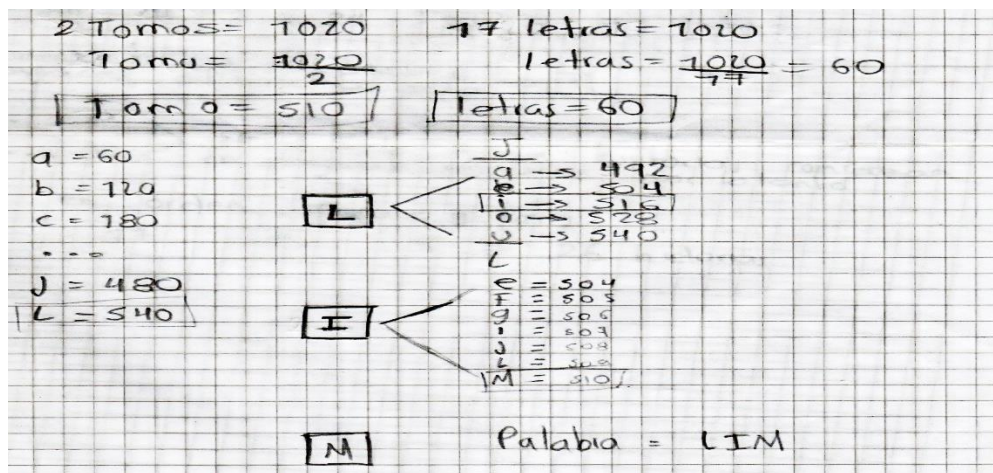 2 Tomos = 1020
Tomo = 1020
2
Tomo = 510
17 letras = 1020
letras = 1020 = 60
17
letras = 60
a = 60
b = 120
c = 180
....
J = 480
L = 540
L
J
a → 492
e → 504
i → 516
o → 528
u → 540
L
I
e = 504
f = 505
g = 506
i = 507
J = 508
L = 509
M = 510
M
Palabra = LIM